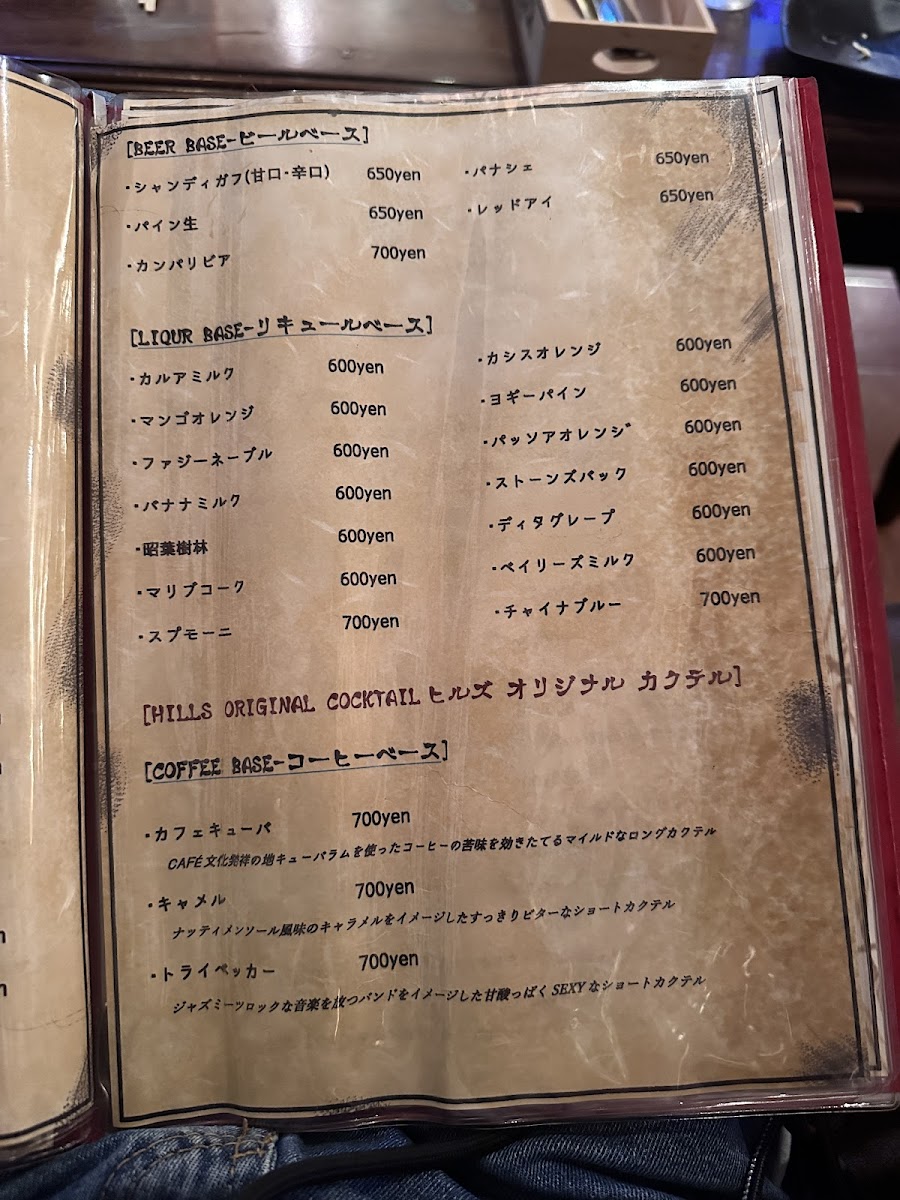 [BEER BASE-ビールベース]
・シャンディガフ(甘口・辛口) 650yen ・パナシェ 650yen
・パイン生 650yen ・レッドアイ 650yen
・カンパリビア 700yen
[LIQUR BASE-リキュールベース]
・カルアミルク 600yen ・カシスオレンジ 600yen
・マンゴオレンジ 600yen ・ヨギーパイン 600yen
・ファジーネーブル 600yen ・パッソアオレンジ 600yen
・バナナミルク 600yen ・ストーンズバック 600yen
・昭葉樹林 600yen ・ディタグレープ 600yen
・マリブコーク 600yen ・ベイリーズミルク 600yen
・スプモーニ 700yen ・チャイナブルー 700yen
[HILLS ORIGINAL COCKTAIL ヒルズ オリジナル カクテル]
[COFFEE BASE-コーヒーベース]
・カフェキューバ 700yen
CAFÉ文化発祥の地キューバラムを使ったコーヒーの苦味を効きたてるマイルドなロングカクテル
・キャメル 700yen
ナッティメンソール風味のキャラメルをイメージしたすっきりビターなショートカクテル
・トライペッカー 700yen
ジャズミーツロックな音楽を放つバンドをイメージした甘酸っぱくSEXYなショートカクテル